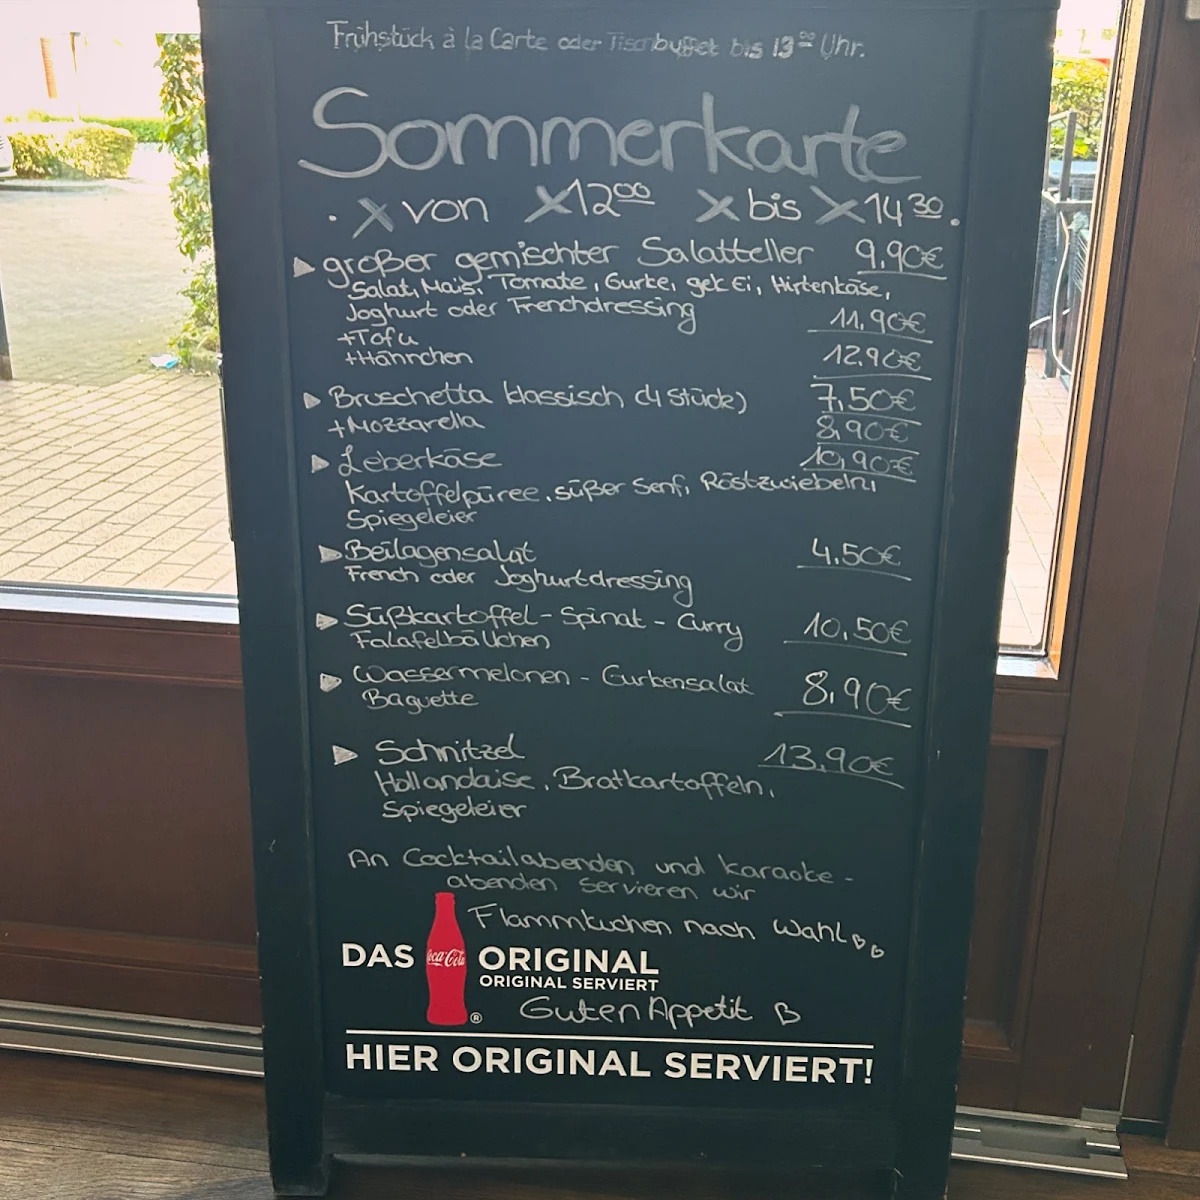 Frühstück à la Carte oder Tischbuffet bis 13⁰⁰ Uhr.
Sommerkarte
. X von X 12⁰⁰ X bis X 14³⁰.
▶ großer gemischter Salatteller 9,90€
Salat, Mais, Tomate, Gurke, gek Ei, Hirtenkäse,
Joghurt oder Frenchdressing
+Tofu 11,90€
+Hähnchen 12,90€
▶ Bruschetta klassisch (4 Stück) 7,50€
+Mozzarella 8,90€
▶ Leberkäse 10,90€
Kartoffelpüree, süßer Senf, Röstzwiebeln,
Spiegeleier
▶ Beilagensalat 4,50€
French oder Joghurtdressing
▶ Süßkartoffel - Spinat - Curry 10,50€
Falafelbällchen
▶ Wassermelonen - Gurkensalat 8,90€
Baguette
▶ Schnitzel 13,90€
Hollandaise, Bratkartoffeln,
Spiegeleier
An Cocktailabenden und Karaoke-
abenden servieren wir
Flammkuchen nach Wahl ♡♡
DAS Coca-Cola ORIGINAL
ORIGINAL SERVIERT
®
Guten Appetit ♡
HIER ORIGINAL SERVIERT!